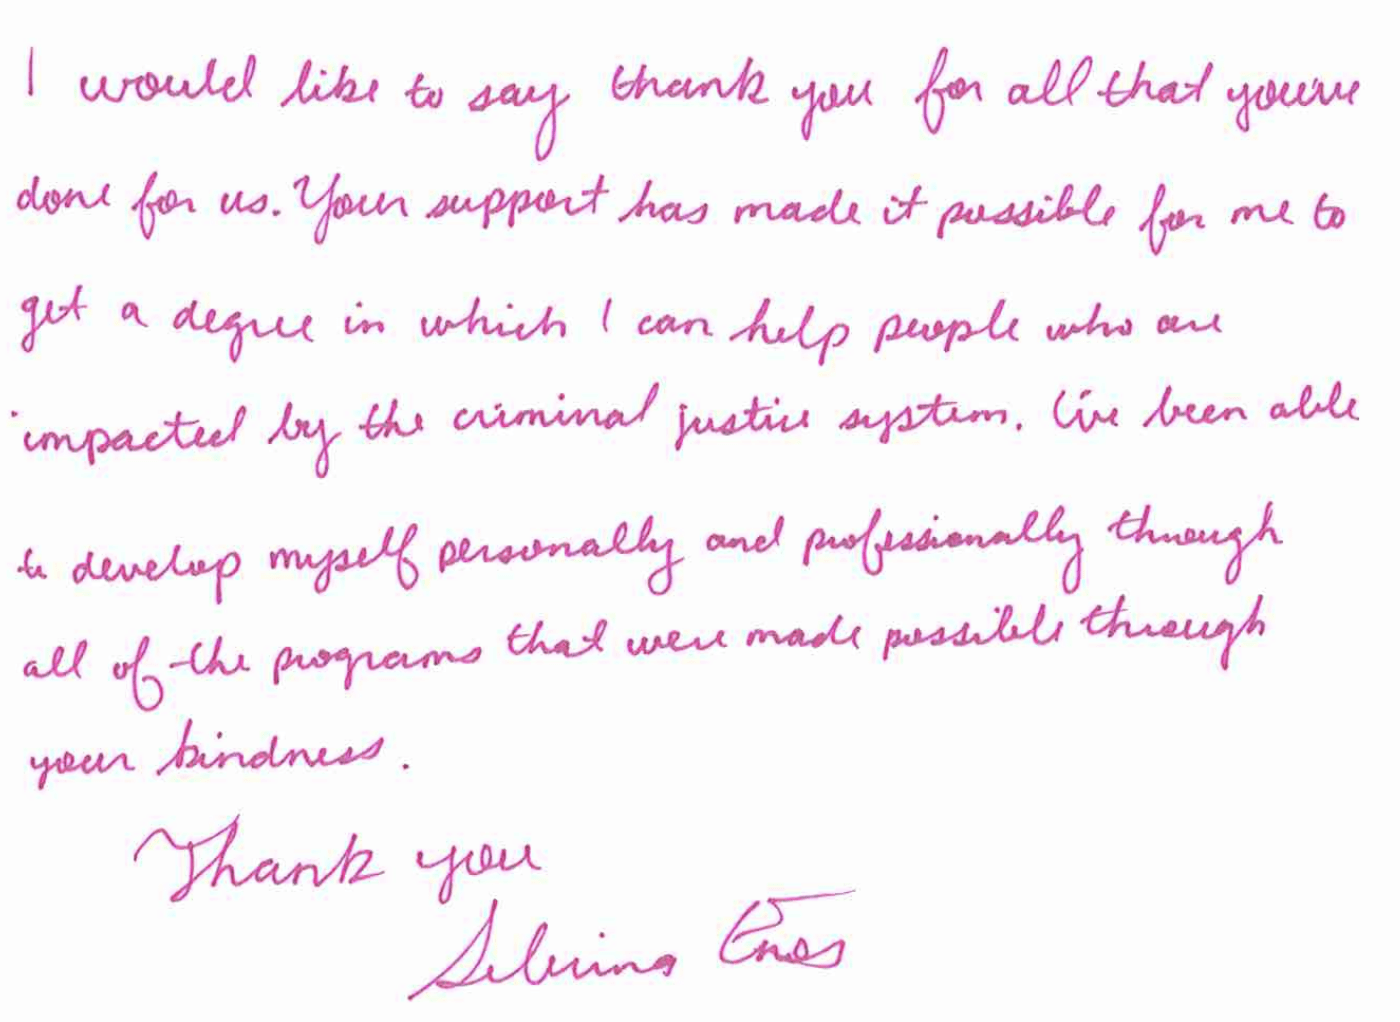 I would like to say thank you for all that you've
done for us. Your support has made it possible for me to
get a degree in which I can help people who are
impacted by the criminal justice system. I've been able
to develop myself personally and professionally through
all of the programs that were made possible through
your kindness.
Thank you
Enos